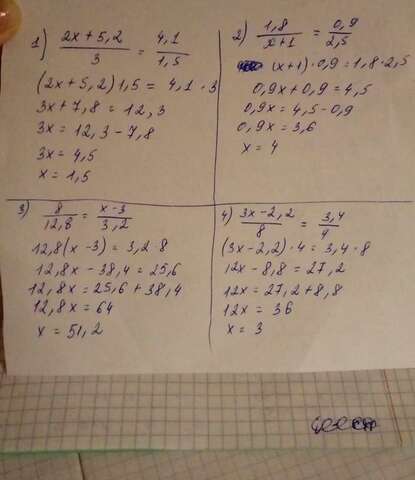 1) (2x+5,2)/3 = 4,1/1,5
(2x+5,2)1,5 = 4,1·3
3x+7,8 = 12,3
3x = 12,3-7,8
3x = 4,5
x = 1,5
2) 1,8/(x+1) = 0,9/2,5
(x+1)·0,9 = 1,8·2,5
0,9x+0,9 = 4,5
0,9x = 4,5-0,9
0,9x = 3,6
x = 4
3) 8/12,8 = (x-3)/3,2
12,8(x-3) = 3,2·8
12,8x-38,4 = 25,6
12,8x = 25,6+38,4
12,8x = 64
x = 51,2
4) (3x-2,2)/8 = 3,4/4
(3x-2,2)·4 = 3,4·8
12x-8,8 = 27,2
12x = 27,2+8,8
12x = 36
x = 3